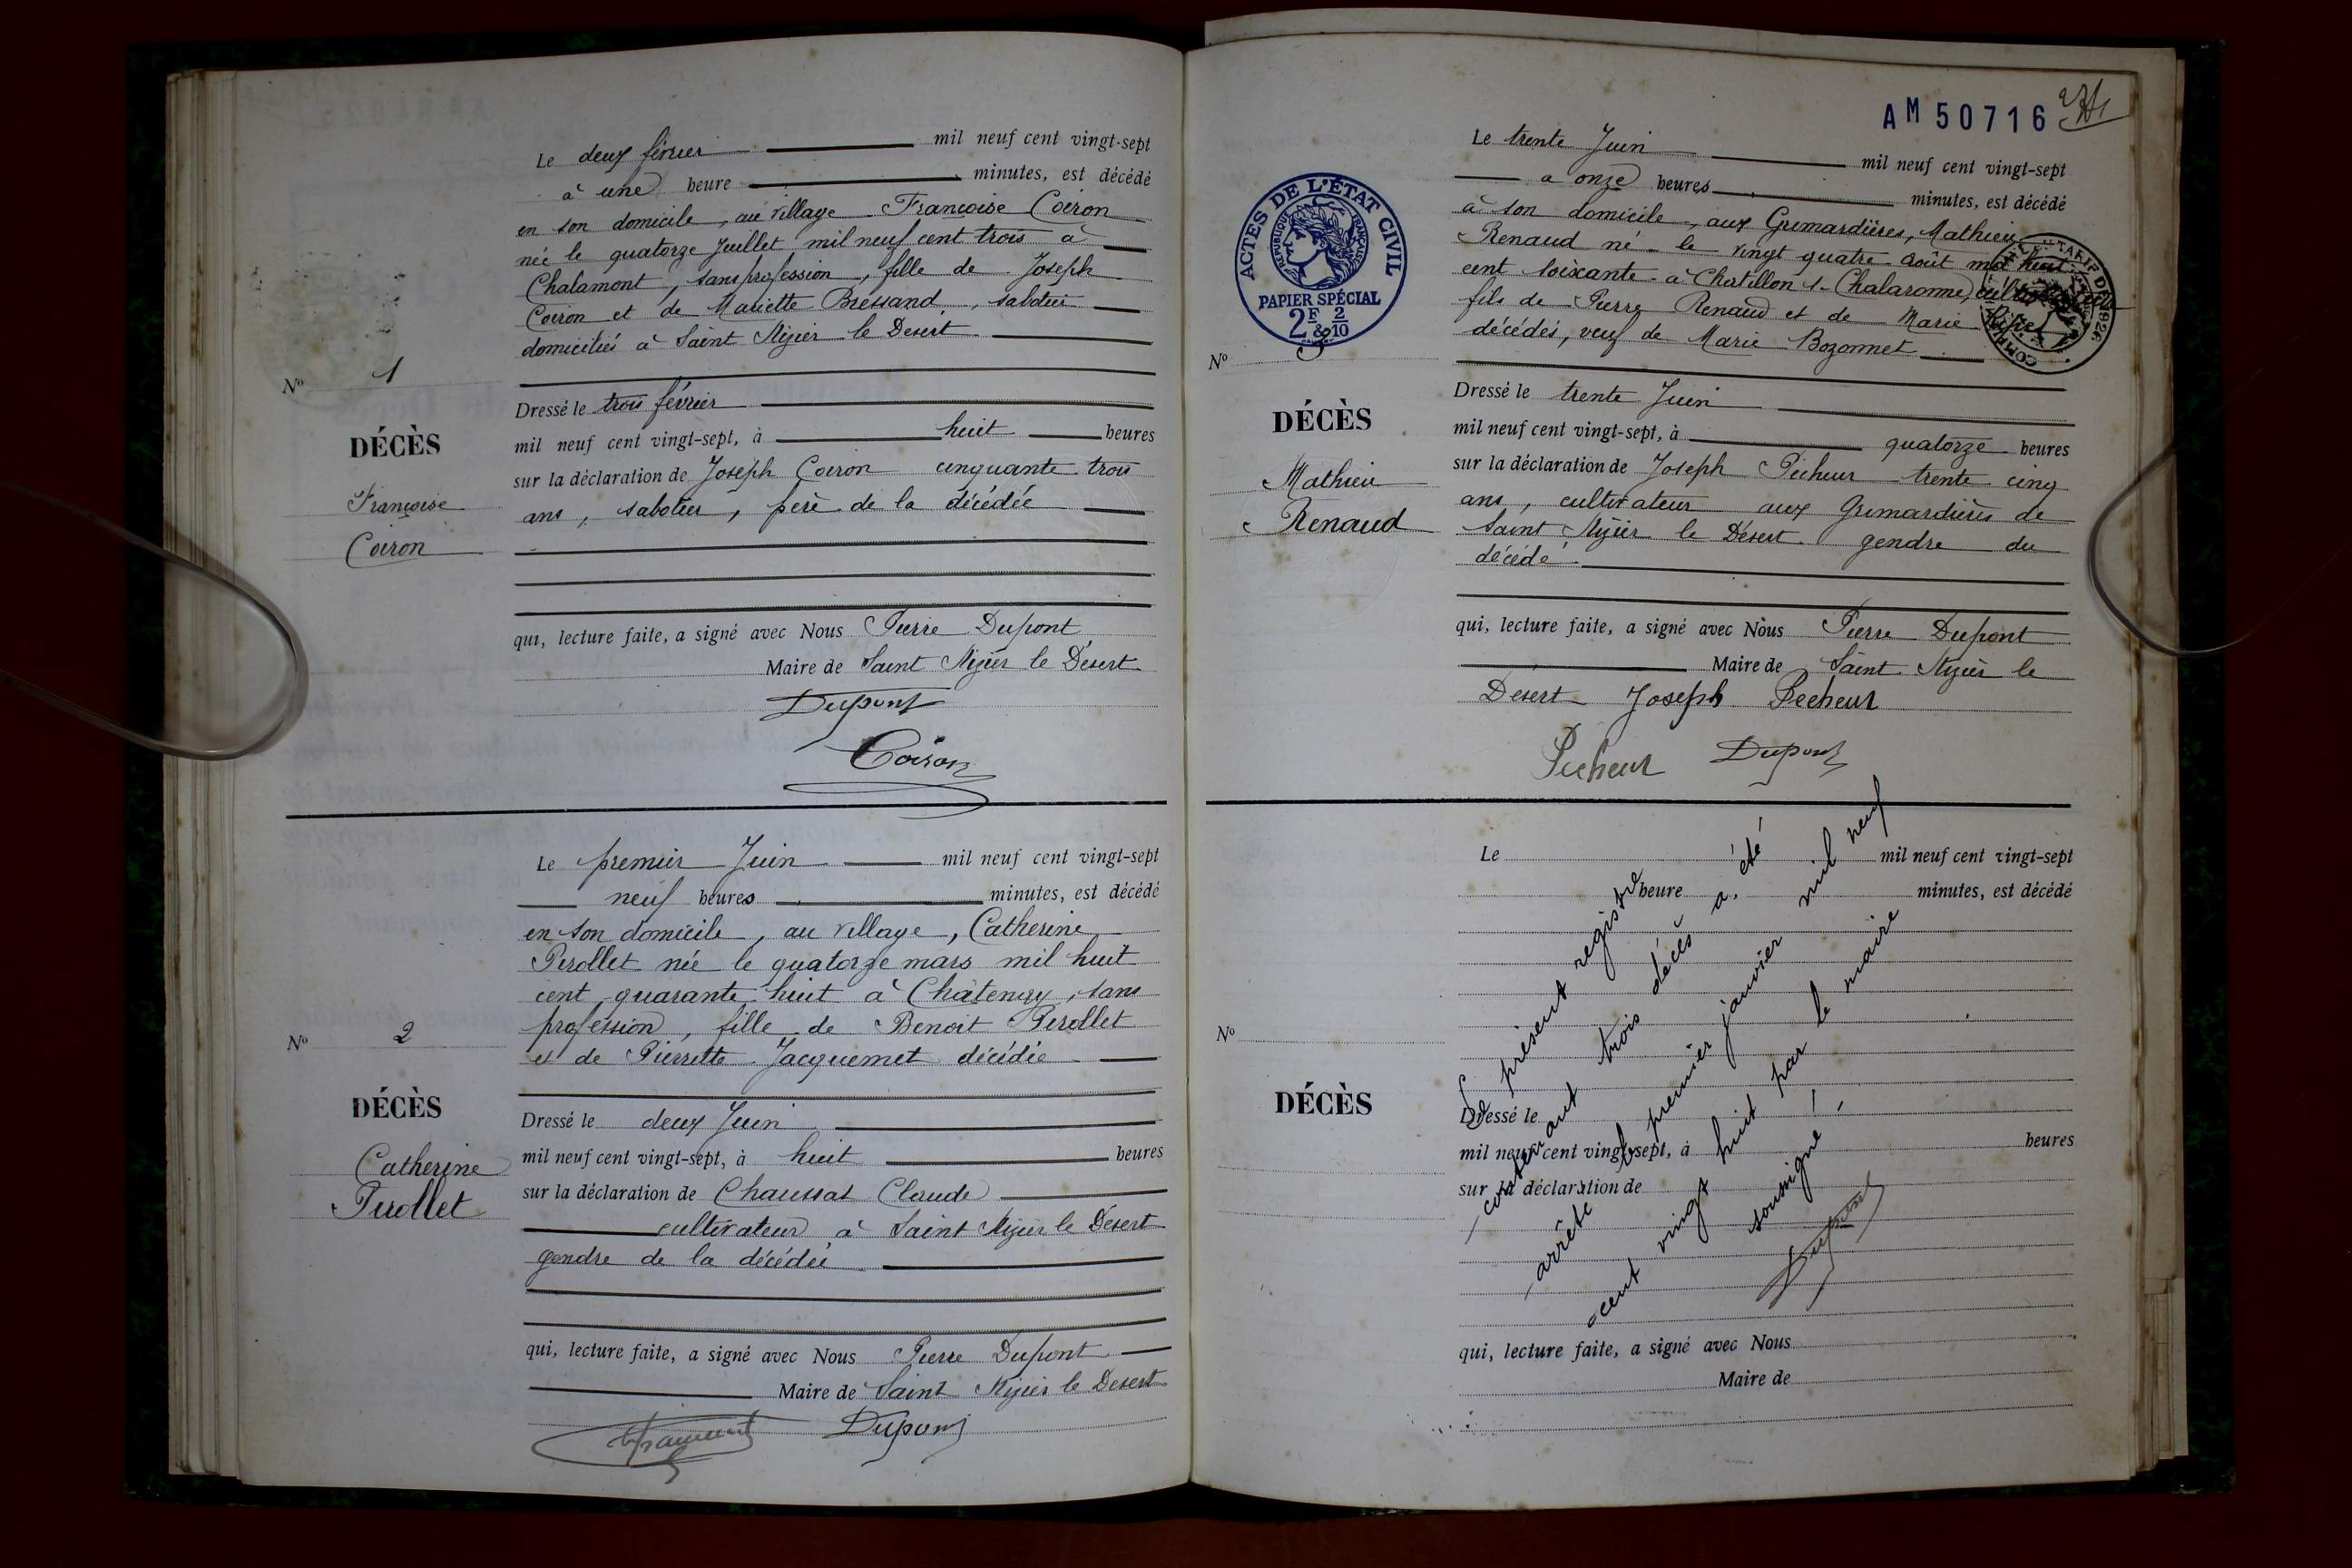 Le deux février mil neuf cent vingt-sept
à une heure minutes, est décédé
en son domicile, au village Françoise Coiron
née le quatorze Juillet mil neuf cent trois à
Chalamont, sans profession, fille de Joseph
Coiron et de Mariette Bressand, sabotier
domiciliés à Saint Nizier le Desert
Nº 1
DÉCÈS
Françoise
Coiron
Dressé le trois février
mil neuf cent vingt-sept, à huit heures
sur la déclaration de Joseph Coiron cinquante trois
ans, sabotier, père de la décédée
qui, lecture faite, a signé avec Nous Pierre Dupont
Maire de Saint Nizier le Désert
Dupont
Coiron
Le premier Juin mil neuf cent vingt-sept
neuf heures minutes, est décédé
en son domicile, au village, Catherine
Perollet née le quatorze mars mil huit
cent quarante huit à Châtenay, sans
profession, fille de Benoit Perollet
et de Pierrette Jacquemet décédée
Nº 2
DÉCÈS
Catherine
Perollet
Dressé le deux Juin
mil neuf cent vingt-sept, à huit heures
sur la déclaration de Chaussat Claude
cultivateur à Saint Nizier le Désert
gendre de la décédée
qui, lecture faite, a signé avec Nous Pierre Dupont
Maire de Saint Nizier le Desert
Dupont
AM 50716
Le trente Juin mil neuf cent vingt-sept
a onze heures minutes, est décédé
à son domicile, aux Grimardières, Mathieu
Renaud né le vingt quatre août mil huit
cent soixante à Chatillon s- Chalaronne, cultivateur
fils de Pierre Renaud et de Marie
décédés, veuf de Marie Bozonnet
ACTES DE L'ÉTAT CIVIL
RÉPUBLIQUE FRANÇAISE
PAPIER SPÉCIAL
2F & 2/10
Nº 3
DÉCÈS
Mathieu
Renaud
Dressé le trente Juin
mil neuf cent vingt-sept, à quatorze heures
sur la déclaration de Joseph Pêcheur trente cinq
ans, cultivateur aux Grimardières de
Saint Nizier le Désert gendre du
décédé
qui, lecture faite, a signé avec Nous Pierre Dupont
Maire de Saint Nizier le
Desert Joseph Pecheur
Pecheur Dupont
Le mil neuf cent vingt-sept
heure minutes, est décédé
Nº
DÉCÈS
Dressé le
mil neuf cent vingt-sept, à heures
sur la déclaration de
qui, lecture faite, a signé avec Nous
Maire de
Le présent registre
contenant trois décès a été
arrêté le premier janvier mil neuf
cent vingt huit par le maire
soussigné
Dupont